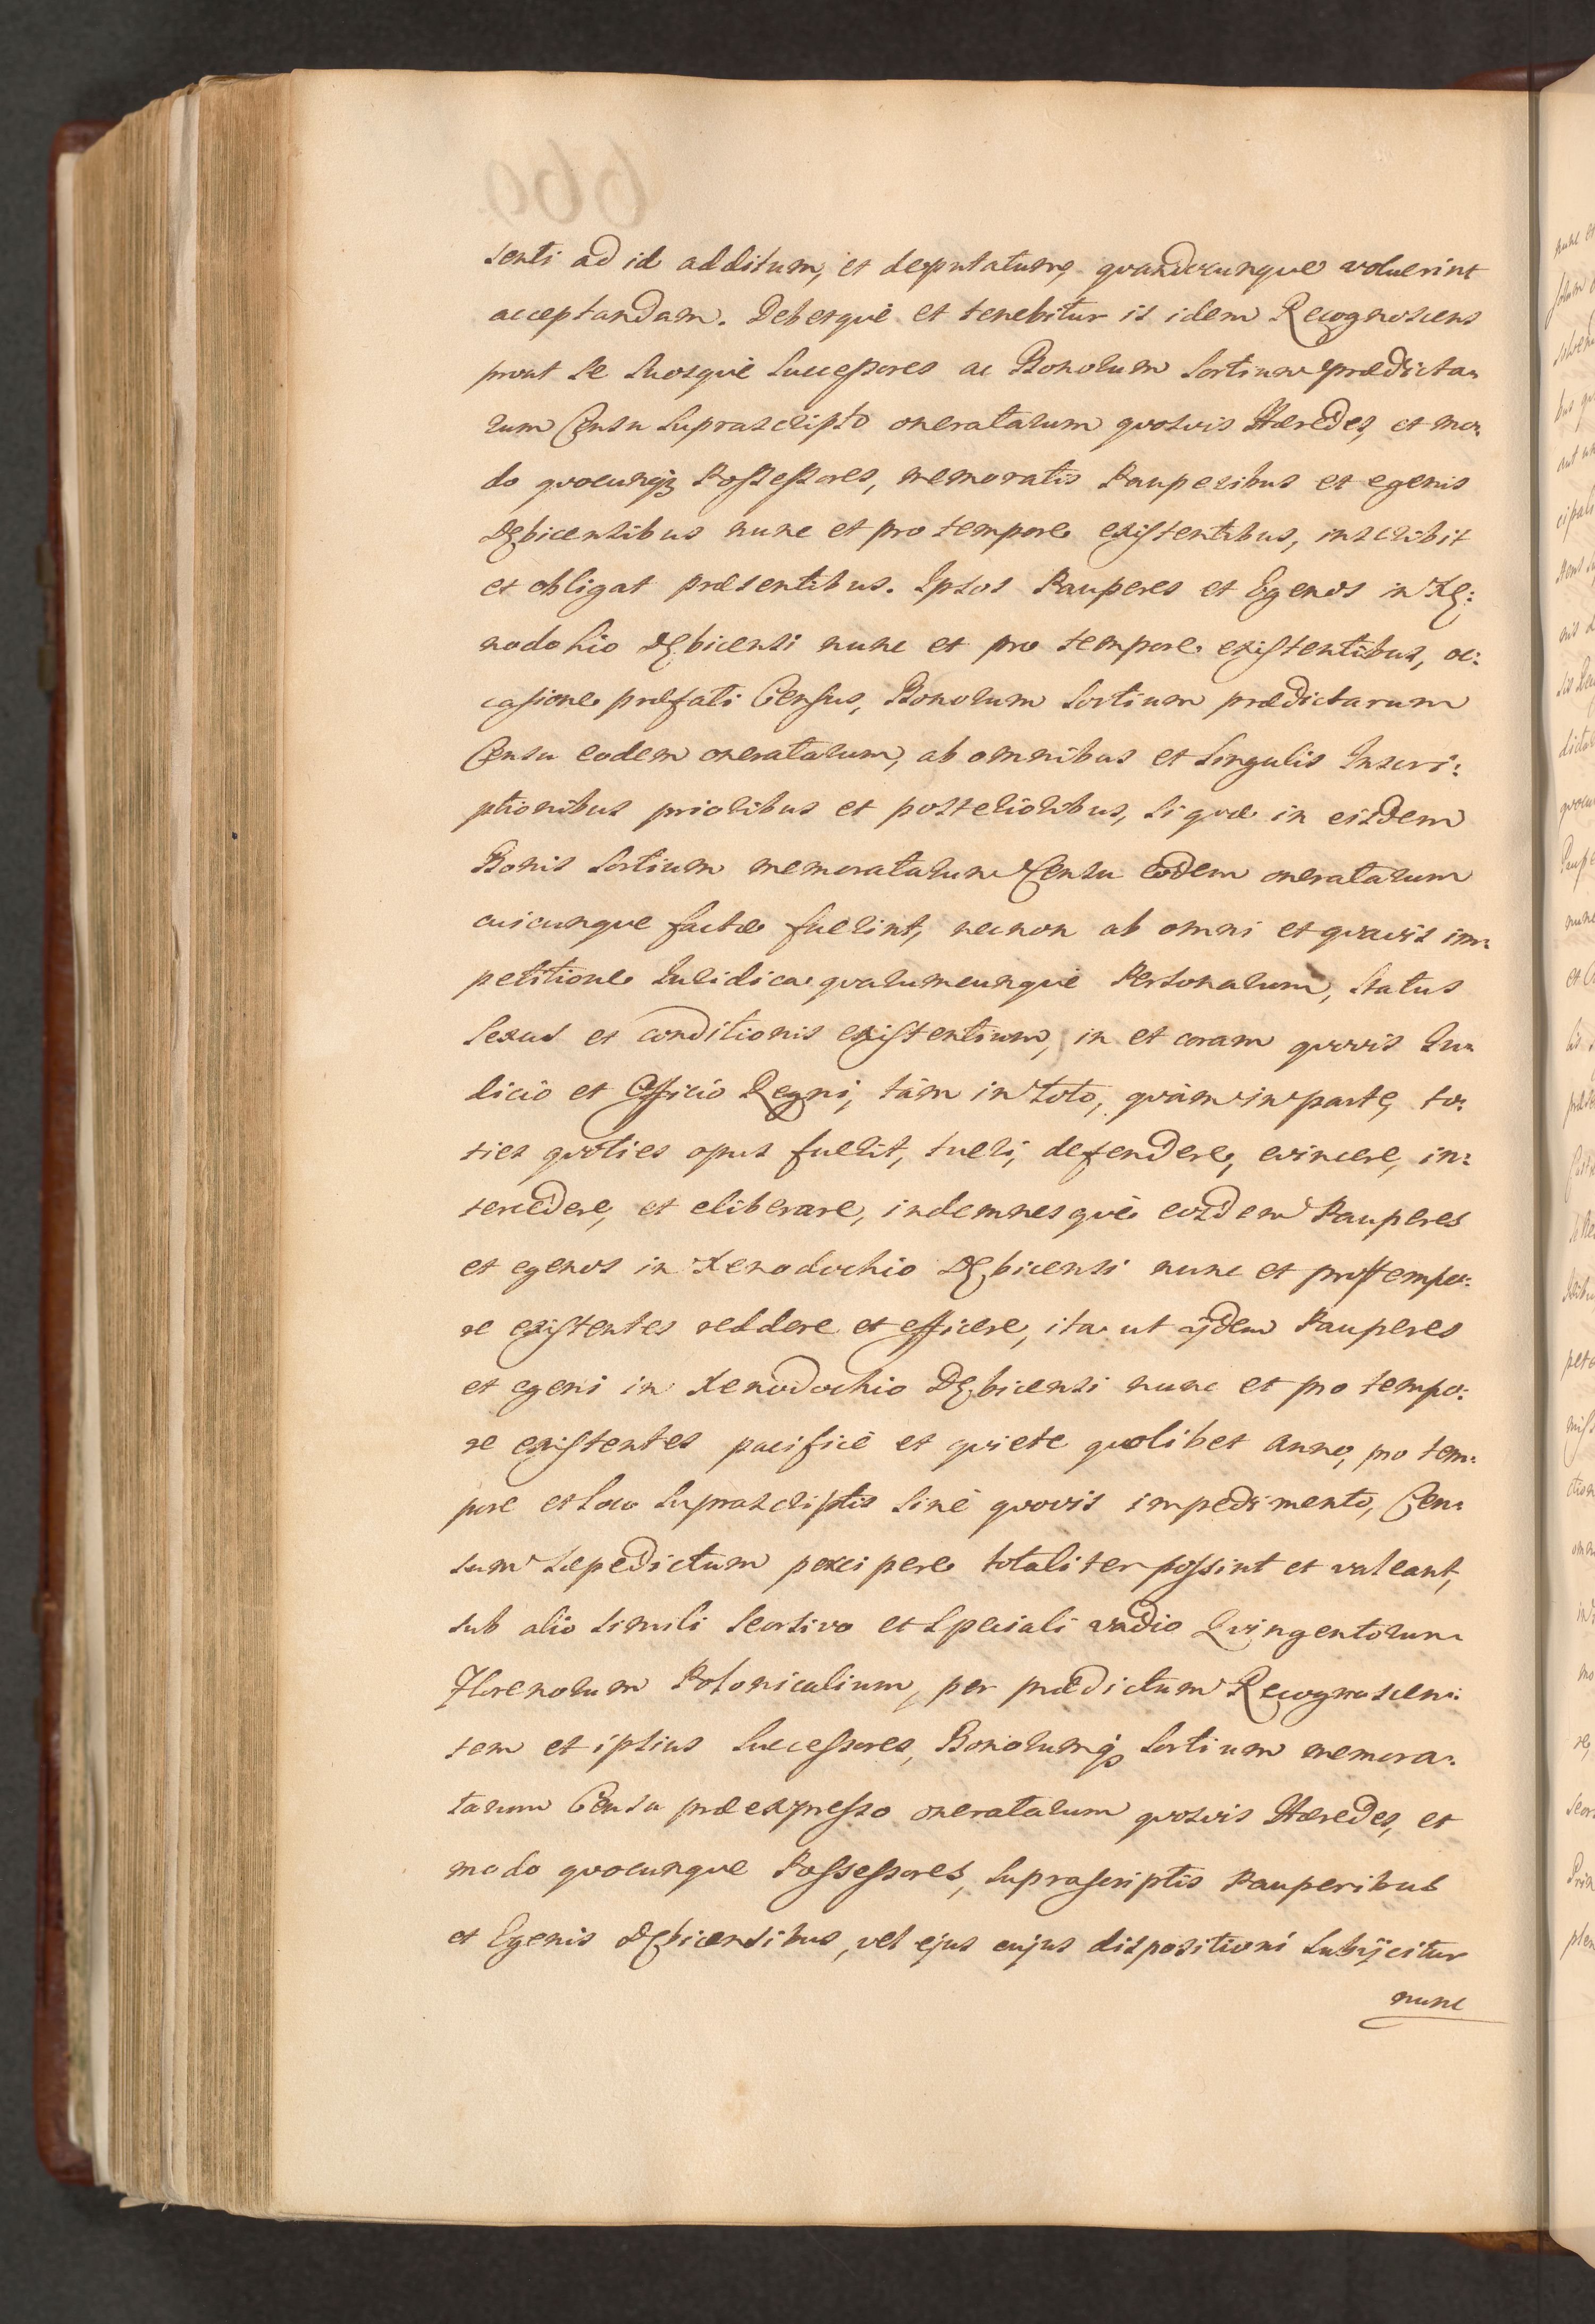 senti ad id additum, et deputatum, quandocunque voluerint
acceptandam. Debetque et tenebitur is idem Recognoscens
prout se suosque Successores ac Bonorum Sortium prædicta-
rum Censu suprascripto oneratarum quosvis Hæredes, et mo-
do quocunq; Possessores, memoratis Pauperibus et egenis
Dębicensibus nunc et pro tempore existentibus, inscribit
et obligat præsentibus. Ipsos Pauperes et Egenos in Xe:
nodohio Dębicensi nunc et pro tempore existentibus, oc:
casione præfati Census, Bonorum Sortium prædictarum
Censu eodem oneratarum, ab omnibus et singulis Inscri:
ptionibus prioribus et posterioribus, si quæ in eisdem
Bonis Sortium memoratarum Censu eodem oneratarum
cuicunque factæ fuerint, necnon ab omni et quavis im-
petitione Iuridica quarumcunque Personarum, Status
Sexus et conditionis existentium, in et coram quovis Iu-
dicio et Officio Regni, tàm in toto, quàm in parte, to:
ties quoties opus fuerit, tueri, defendere, evincere, in:
tercedere, et eliberare, indemnesquè eosdem Pauperes
et egenos in Xenodochio Dębicensi nunc et pro tempo:
re existentes reddere et efficere, ita ut ijdem Pauperes
et egeni in Xenodochio Dębicensi nunc et pro tempo:
re existentes pacificè et quiete quolibet anno, pro tem-
pore et loco suprascriptis sinè quovis impedimento, Cen-
sum sæpedictum percipere totaliter possint et valeant,
sub alio simili seorsivo et speciali vadio Quingentorum
Florenorum Polonicalium, per prædictum Recognoscen:
tem et ipsius Successores, Bonorumq; Sortium memora-
tarum Censu præexpresso oneratarum quosvis Hæredes, et
modo quocunque Possessores, suprascriptis Pauperibus
et Egenis Dębicensibus, vel ejus cujus dispositioni subijcitur
nunc